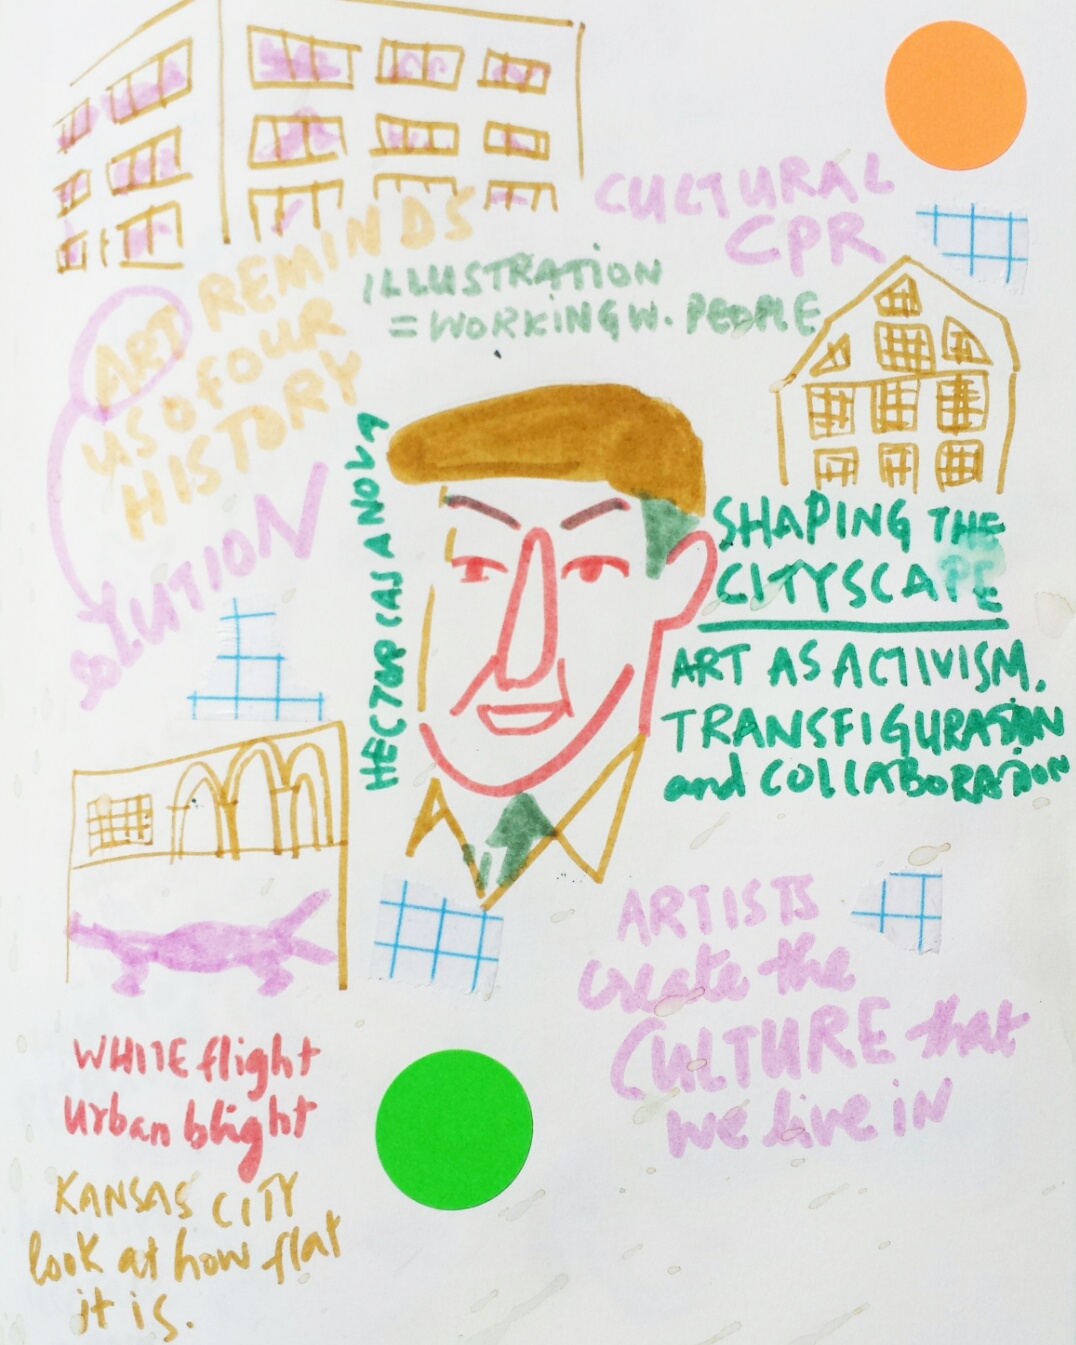 CULTURAL
CPR
ART REMINDS
US OF OUR
HISTORY
SOLUTION
ILLUSTRATION
= WORKING W. PEOPLE
HECTOR CASANOVA
SHAPING THE
CITYSCAPE
ART AS ACTIVISM.
TRANSFIGURATION
and COLLABORATION
ARTISTS
create the
CULTURE that
we live in
WHITE flight
Urban blight
KANSAS CITY
look at how flat
it is.